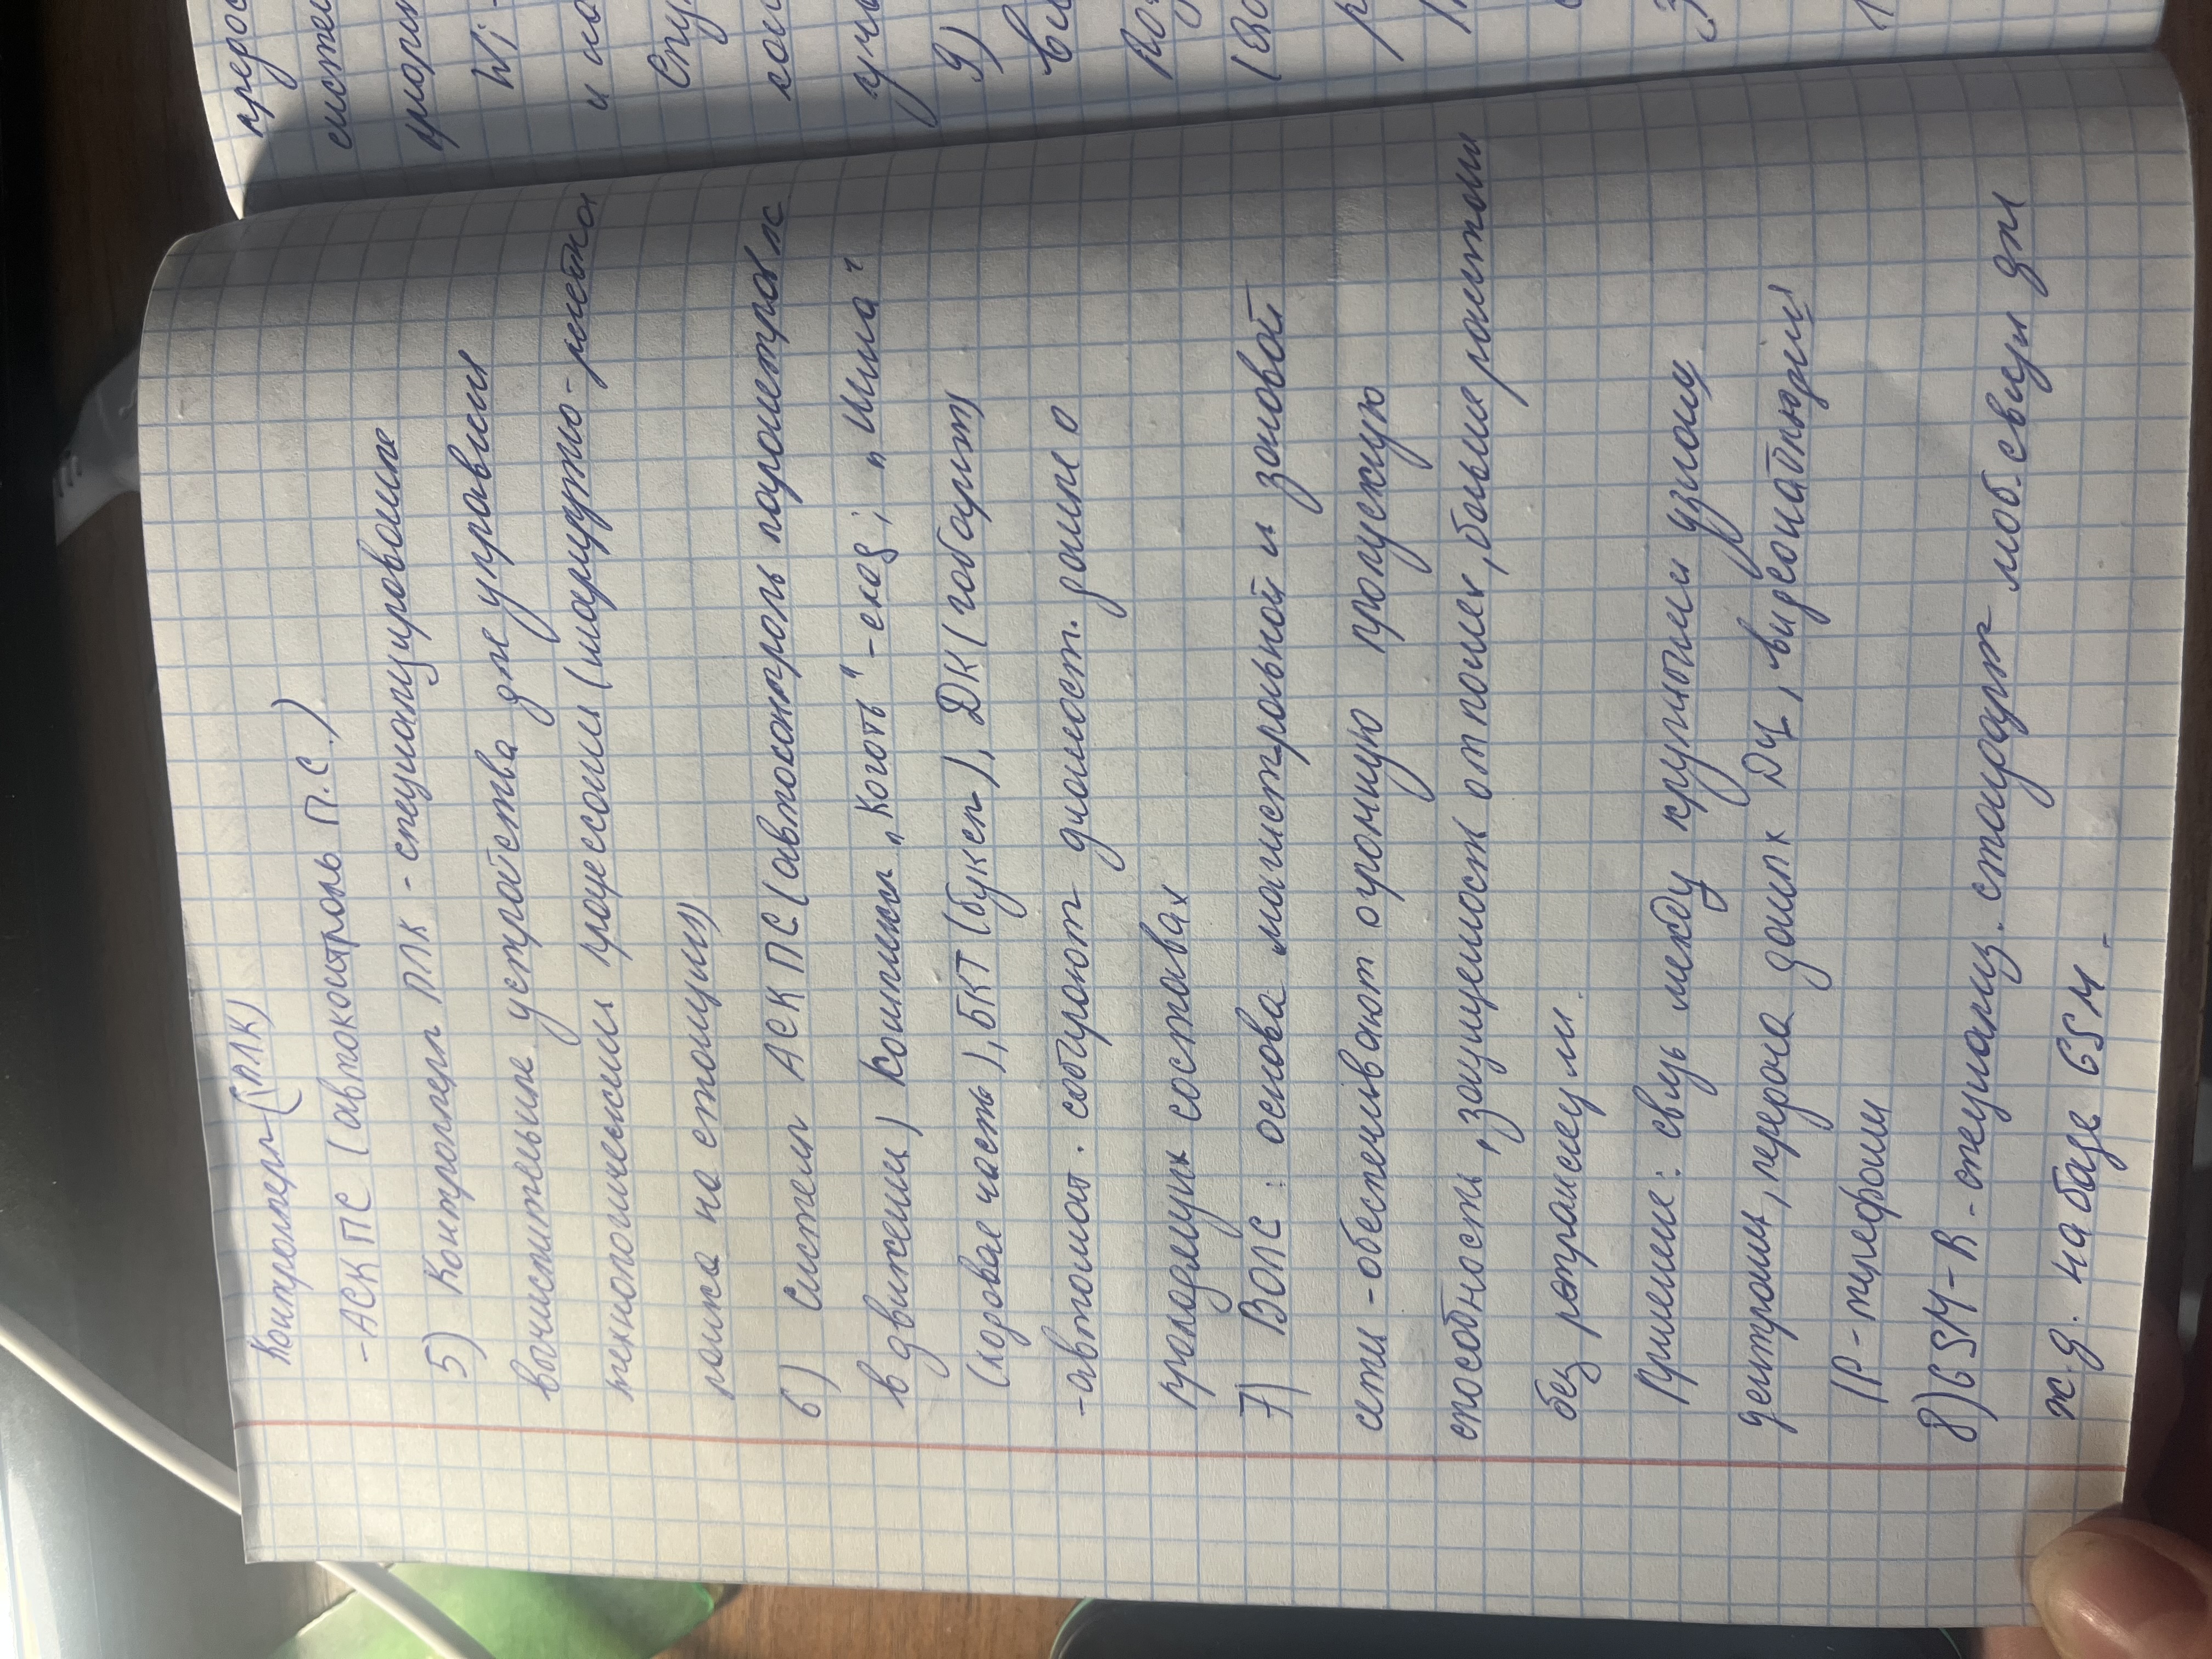 Контроллеры (ПЛК)
- АСК ПС (автоконтроль П.С.)
5) Контроллеры ПЛК - специализированые
вычислительные устройства для управления
технологическими процессами (маршрутно-релейна
на станции)
6) Системы АСК ПС (автоконтроль параметров пс
в движении) Комплексы „Коготь" -
(ходовая часть), БКТ (буксы), ДК (габариты)
-автомат. собирают диагност. данные о
проходящих составах
7) ВОЛС: основа магистральной и зоновой
сети - обеспечивают огромную пропускную
способность, защищеность от помех, большие расстояния
без ретрансляции.
Применение: связь между крупными узлами,
центрами, передача данных ДЦ, видеонаблюдения
IP-телефония
8) GSM-R - специализ. стандарт моб. связи для
ж.д. на базе GSM.
предос
систем
приори
Wi-
и на
Спу
9)